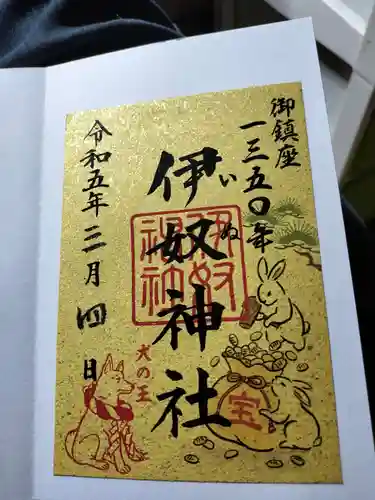 御鎮座
一三五〇年
伊奴神社
いぬ
伊奴神社
令和五年三月四日
犬の王
宝